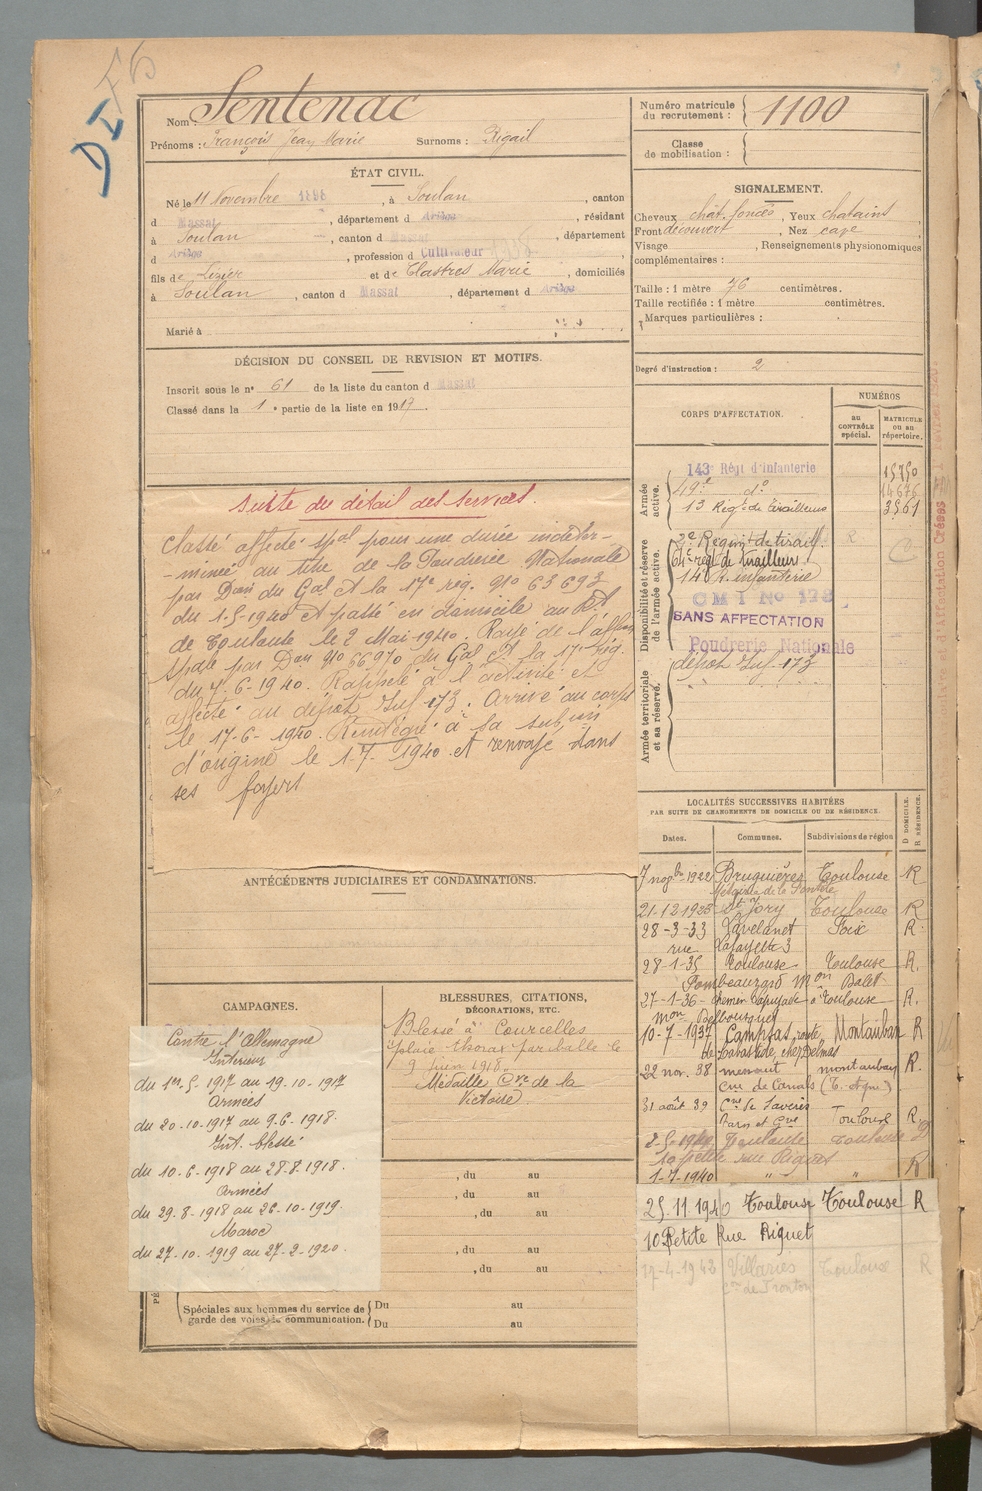 D I
Nom : Sentenac
Prénoms : François Jean Marie Surnoms : Rigail
ÉTAT CIVIL.
Né le 11 Novembre 1898, à Soulan, canton
d Massat, département d Ariège, résidant
à Soulan, canton d Massat, département
d Ariège, profession d Cultivateur
fils de Lizier et de Clastres Marie, domiciliés
à Soulan, canton d Massat, département d Ariège
Marié à
DÉCISION DU CONSEIL DE REVISION ET MOTIFS.
Inscrit sous le n° 61 de la liste du canton d Massat
Classé dans la 1e partie de la liste en 1917.
suite du détail des services.
Classé affecté spal pour une durée indéter-
-minée au titre de la Poudrerie Nationale
par Don du Gal Ct la 17e rég. No 63693
du 1-5-1940 et passé en domicile au Rt
de Toulouse le 2 Mai 1940. Rayé de l'affon
spale par Don No 66970 du Gal Ct la 17e Rég.
du 7-6-1940. Rappelé à l'activité et
affecté au dépôt Inf 173. Arrivé au corps
le 17-6-1940. Réintégré à la subjon
d'origine le 1-7-1940 et renvoyé dans
ses foyers
ANTÉCÉDENTS JUDICIAIRES ET CONDAMNATIONS.
CAMPAGNES.
Contre l'Allemagne
Intérieur
du 1er-5-1917 au 19-10-1917
Armées
du 20-10-1917 au 9-6-1918.
Int. blessé
du 10-6-1918 au 28-8-1918.
Armées
du 29-8-1918 au 26-10-1919.
Maroc
du 27-10-1919 au 27-2-1920.
BLESSURES, CITATIONS,
DÉCORATIONS, ETC.
Blessé à Courcelles
plaie thorax par balle le
9 juin 1918.
Médaille Cve de la
Victoire.
, du au
, du au
, du au
, du au
, du au
Spéciales aux hommes du service de garde des voies de communication. Du au
Du au
Numéro matricule du recrutement : 1100
Classe de mobilisation :
SIGNALEMENT.
Cheveux chât. foncés, Yeux châtains
Front découvert, Nez cave
Visage , Renseignements physionomiques
complémentaires :
Taille : 1 mètre 76 centimètres.
Taille rectifiée : 1 mètre centimètres.
Marques particulières :
Degré d'instruction : 2
CORPS D'AFFECTATION.
NUMÉROS
au CONTRÔLE spécial.
MATRICULE ou au répertoire.
Armée active.
143e Régt d'Infanterie 15750
49e do 14676
13 Regt de tirailleurs 3561
Disponibilité et réserve de l'armée active.
2e Regim. de tiraill.
64e régt de tirailleurs
14e R. infanterie
CMI No 178
SANS AFFECTATION
Poudrerie Nationale
Armée territoriale et sa réserve.
dépôt Inf 173
LOCALITÉS SUCCESSIVES HABITÉES
PAR SUITE DE CHANGEMENTS DE DOMICILE OU DE RÉSIDENCE.
D DOMICILE.
R RÉSIDENCE.
Dates. Communes. Subdivisions de région
7 novbre 1922 Bruguières Toulouse R
21-12-1923 St Jory Toulouse R
28-3-33 Lavelanet Foix R
rue Lafayette 3
28-1-35 Toulouse Toulouse R.
27-1-36 chemin Toulouse R.
10-7-1937 Campsas route Montauban R
de Labastide, chez Delmas
22 nov. 38 montauban R.
cne de Canals (T. et Gne)
31 août 39 Cne de Toulouse R.
Tarn et Gne
2-5-1940 Toulouse Toulouse D
10 petite rue Riquet
1-7-1940 " " R
25.11.1940 Toulouse Toulouse R
10 Petite Rue Riquet
17-4-1942 Villaries Toulouse R
Con de Fronton